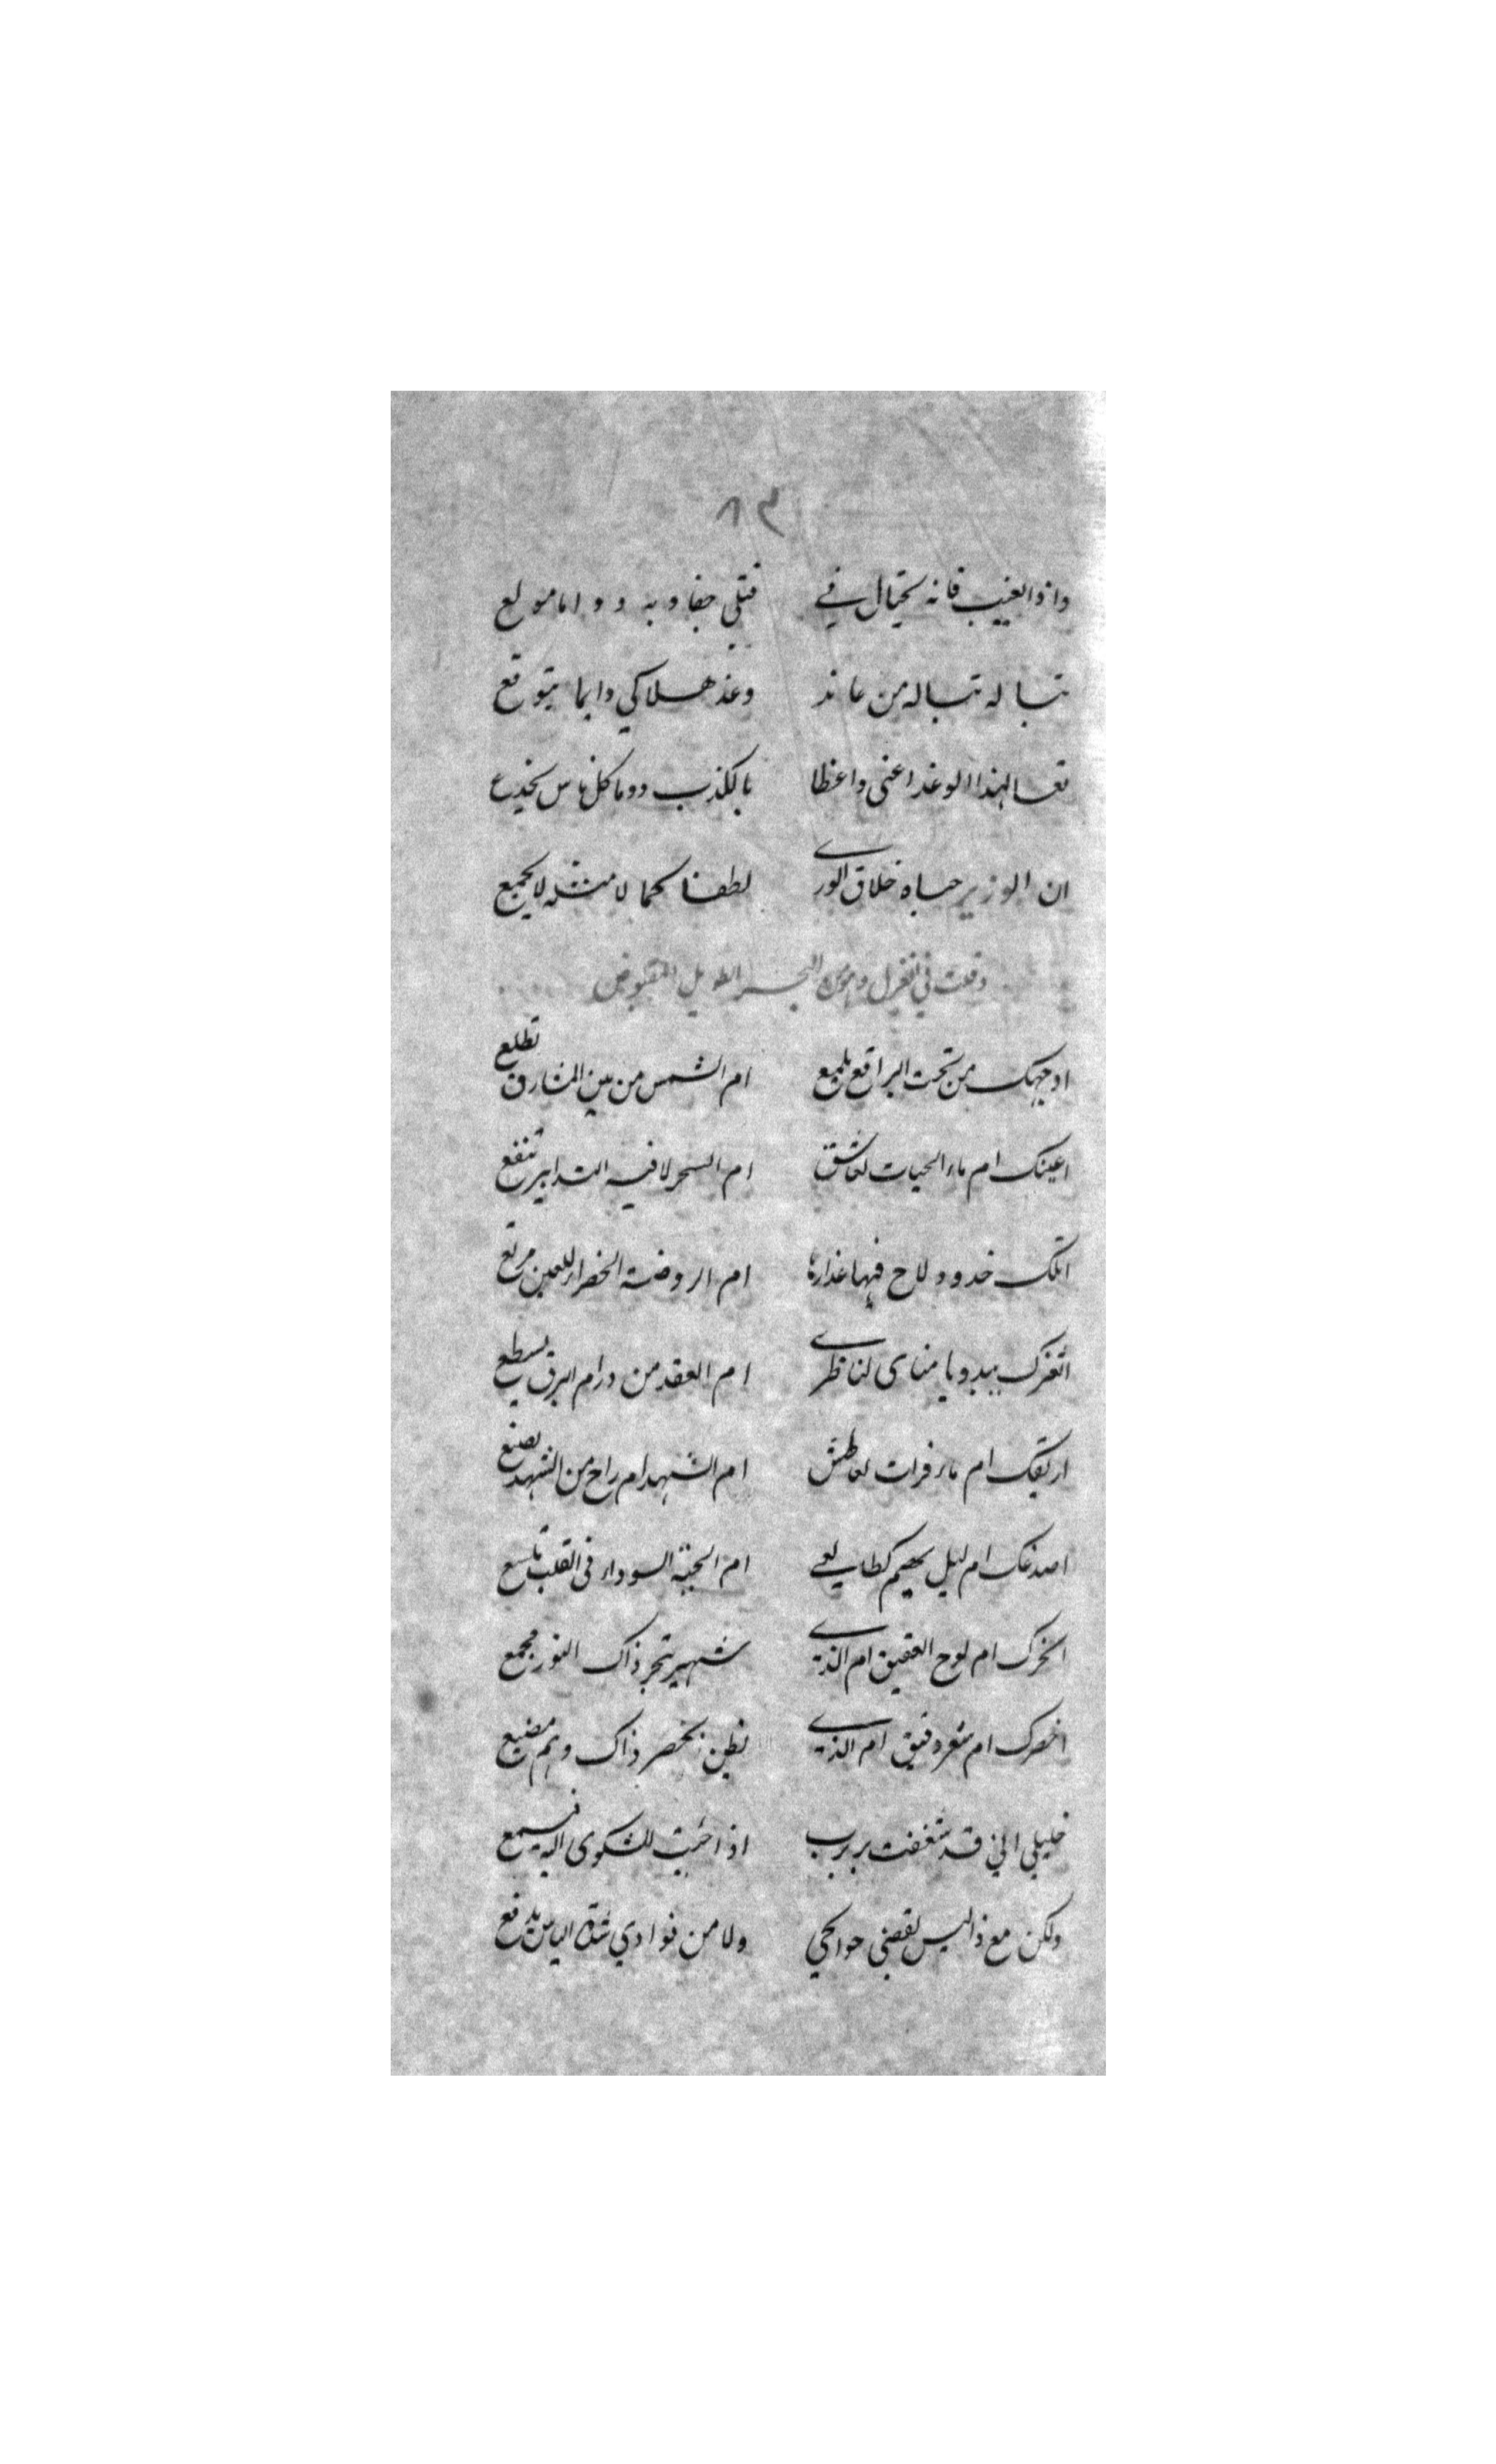 ٨٣
واذا الغيب فانه يحتال في قتلي جفا وبه دواما مولع
تبا له تبا له من عاند وعند هلاكي دايما يتوقع
تعسا لهذا الوغد اعنى واعظا بالكذب دوما كل ناس يخدع
ان الوزير حباه خلاق الورى لطفا كما لا مثله لا يجمع
وقلت في الغزل وهو من البحر الطويل المقبوض
اوجهك من تحت البراقع يلمع ام الشمس من بين المشارق تطلع
اعينك ام ماء الحيات لعاشق ام السحر لا فيه التدابير تنفع
اتلك خدود لاح فيها عذارها ام الروضة الخضراء للعين مرتع
اثغرك يبدو يا مناى لناظرى ام العقد من در ام البرق يسطع
اريقك ام ماء فرات لعاطش ام الشهد ام راح من الشهد يصنع
اصدغك ام ليل بهيم كطالعي ام الحية السوداء فى القلب تلسع
انحرك ام لوح العقيق ام الذى شهير بنحر ذاك النور مجمع
اخصرك ام شعر دقيق ام الذى نظن بخصر ذاك وهم مضيع
خليلي اني قد شغفت بربرب اذا جئت للشكوى اليه فيسمع
ولكن مع ذا ليس يقضى حوائجي ولا من فوادي شدة الياس يدفع